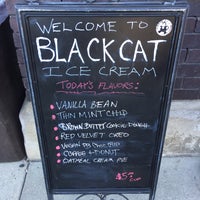 WELCOME TO
BLACK CAT
ICE CREAM
TODAY'S FLAVORS:
VANILLA BEAN
THIN MINT CHIP
BROWN BUTTER COOKIE DOUGH
RED VELVET OREO
VEGAN CHIP
COFFEE + DONUT
OATMEAL CREAM PIE